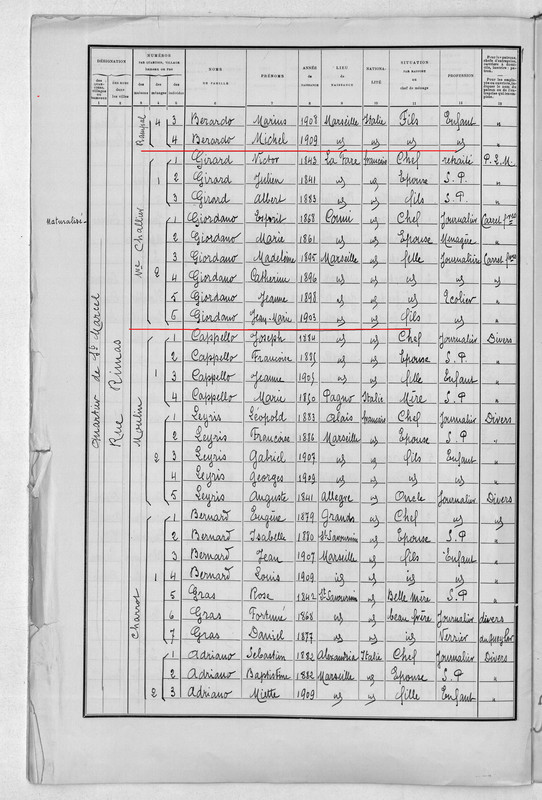 DÉSIGNATION NUMÉROS NOMS PRÉNOMS ANNÉE LIEU NATIONA- SITUATION PROFESSION
DE FAMILLE de NAISSANCE de NAISSANCE LITÉ PAR RAPPORT au chef de ménage
Rampal 4 3 Berardo Marius 1908 Marseille Italie Fils Enfant "
4 Berardo Michel 1909 id id id id "
1 Girard Victor 1843 La Fare français Chef retraité P.L.M.
1 2 Girard Julien 1841 id id Epouse S.P "
3 Girard Albert 1883 id id fils S.P "
Naturalisé 1 Giordano Esprit 1868 Coni id Chef Journalier Carret frres
Challier 2 Giordano Marie 1861 id id Epouse Ménagère "
3 Giordano Madeleine 1895 Marseille id fille Journalière Carret frres
2 4 Giordano Catherine 1896 id id id id "
5 Giordano Jeanne 1898 id id id Ecolier "
5 Giordano Jean-Marie 1903 id id fils id "
Quartier de St Marcel Rue Rimas Moulin 1 Cappello Joseph 1884 id id Chef Journalier Divers
1 2 Cappello Francoise 1885 id id Epouse S.P. "
3 Cappello Jeanne 1905 id id fille Enfant "
4 Cappello Marie 1850 Pagno Italie Mère S.P "
1 Leyris Léopold 1883 Alais français Chef Journalier Divers
2 Leyris Francoise 1886 Marseille id Epouse S.P "
2 3 Leyris Gabriel 1907 id id fils Enfant "
4 Leyris Georges 1909 id id id id "
5 Leyris Auguste 1841 Allegre id Oncle Journalier Divers
Charrot 1 Bernard Eugène 1879 Grans id Chef id id
2 Bernard Isabelle 1880 St Savournin id Epouse S.P "
3 Bernard Jean 1907 Marseille id fils Enfant "
1 4 Bernard Louis 1909 id id id id "
5 Gras Rose 1842 St Savournin id Belle Mère S.P "
6 Gras Fortuné 1868 id id beau frère Journalier divers
7 Gras Daniel 1877 id id id Verrier
1 Adriano Sebastien 1882 Alexandrie Italie Chef Journalier Divers
2 Adriano Baptistine 1882 Marseille id Epouse S.P "
2 3 Adriano Miette 1909 id id fille Enfant "